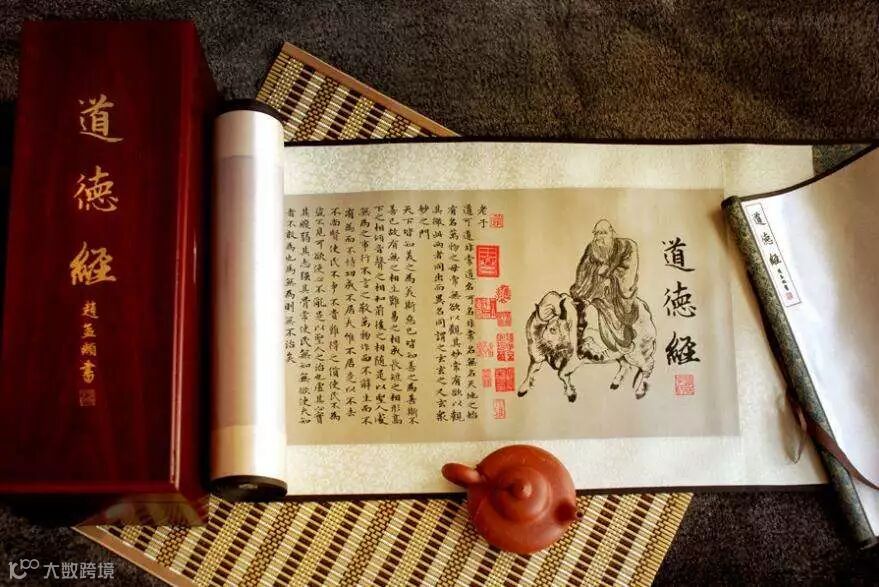 道德經
趙孟頫書
道德經
老子
道可道非常道名可名非常名無名天地之始
有名萬物之母常無欲以觀其妙常有欲以觀
其徼此兩者同出而異名同謂之玄玄之又玄衆
妙之門
天下皆知美之為美斯惡已皆知善之為善斯不
善已故有無之相生難易之相成長短之相形高
下之相傾音聲之相和前後之相隨是以聖人處
無為之事行不言之教萬物作而不辭生而不
有為而不恃功成不居夫惟不居是以不去
不尚賢使民不爭不貴難得之貨使民不為
盜不見可欲使心不亂是以聖人之治也虛其心實
其腹弱其志強其骨常使民無知無欲使夫知
者不敢為也為無為則無不治矣
道德經
大数跨境